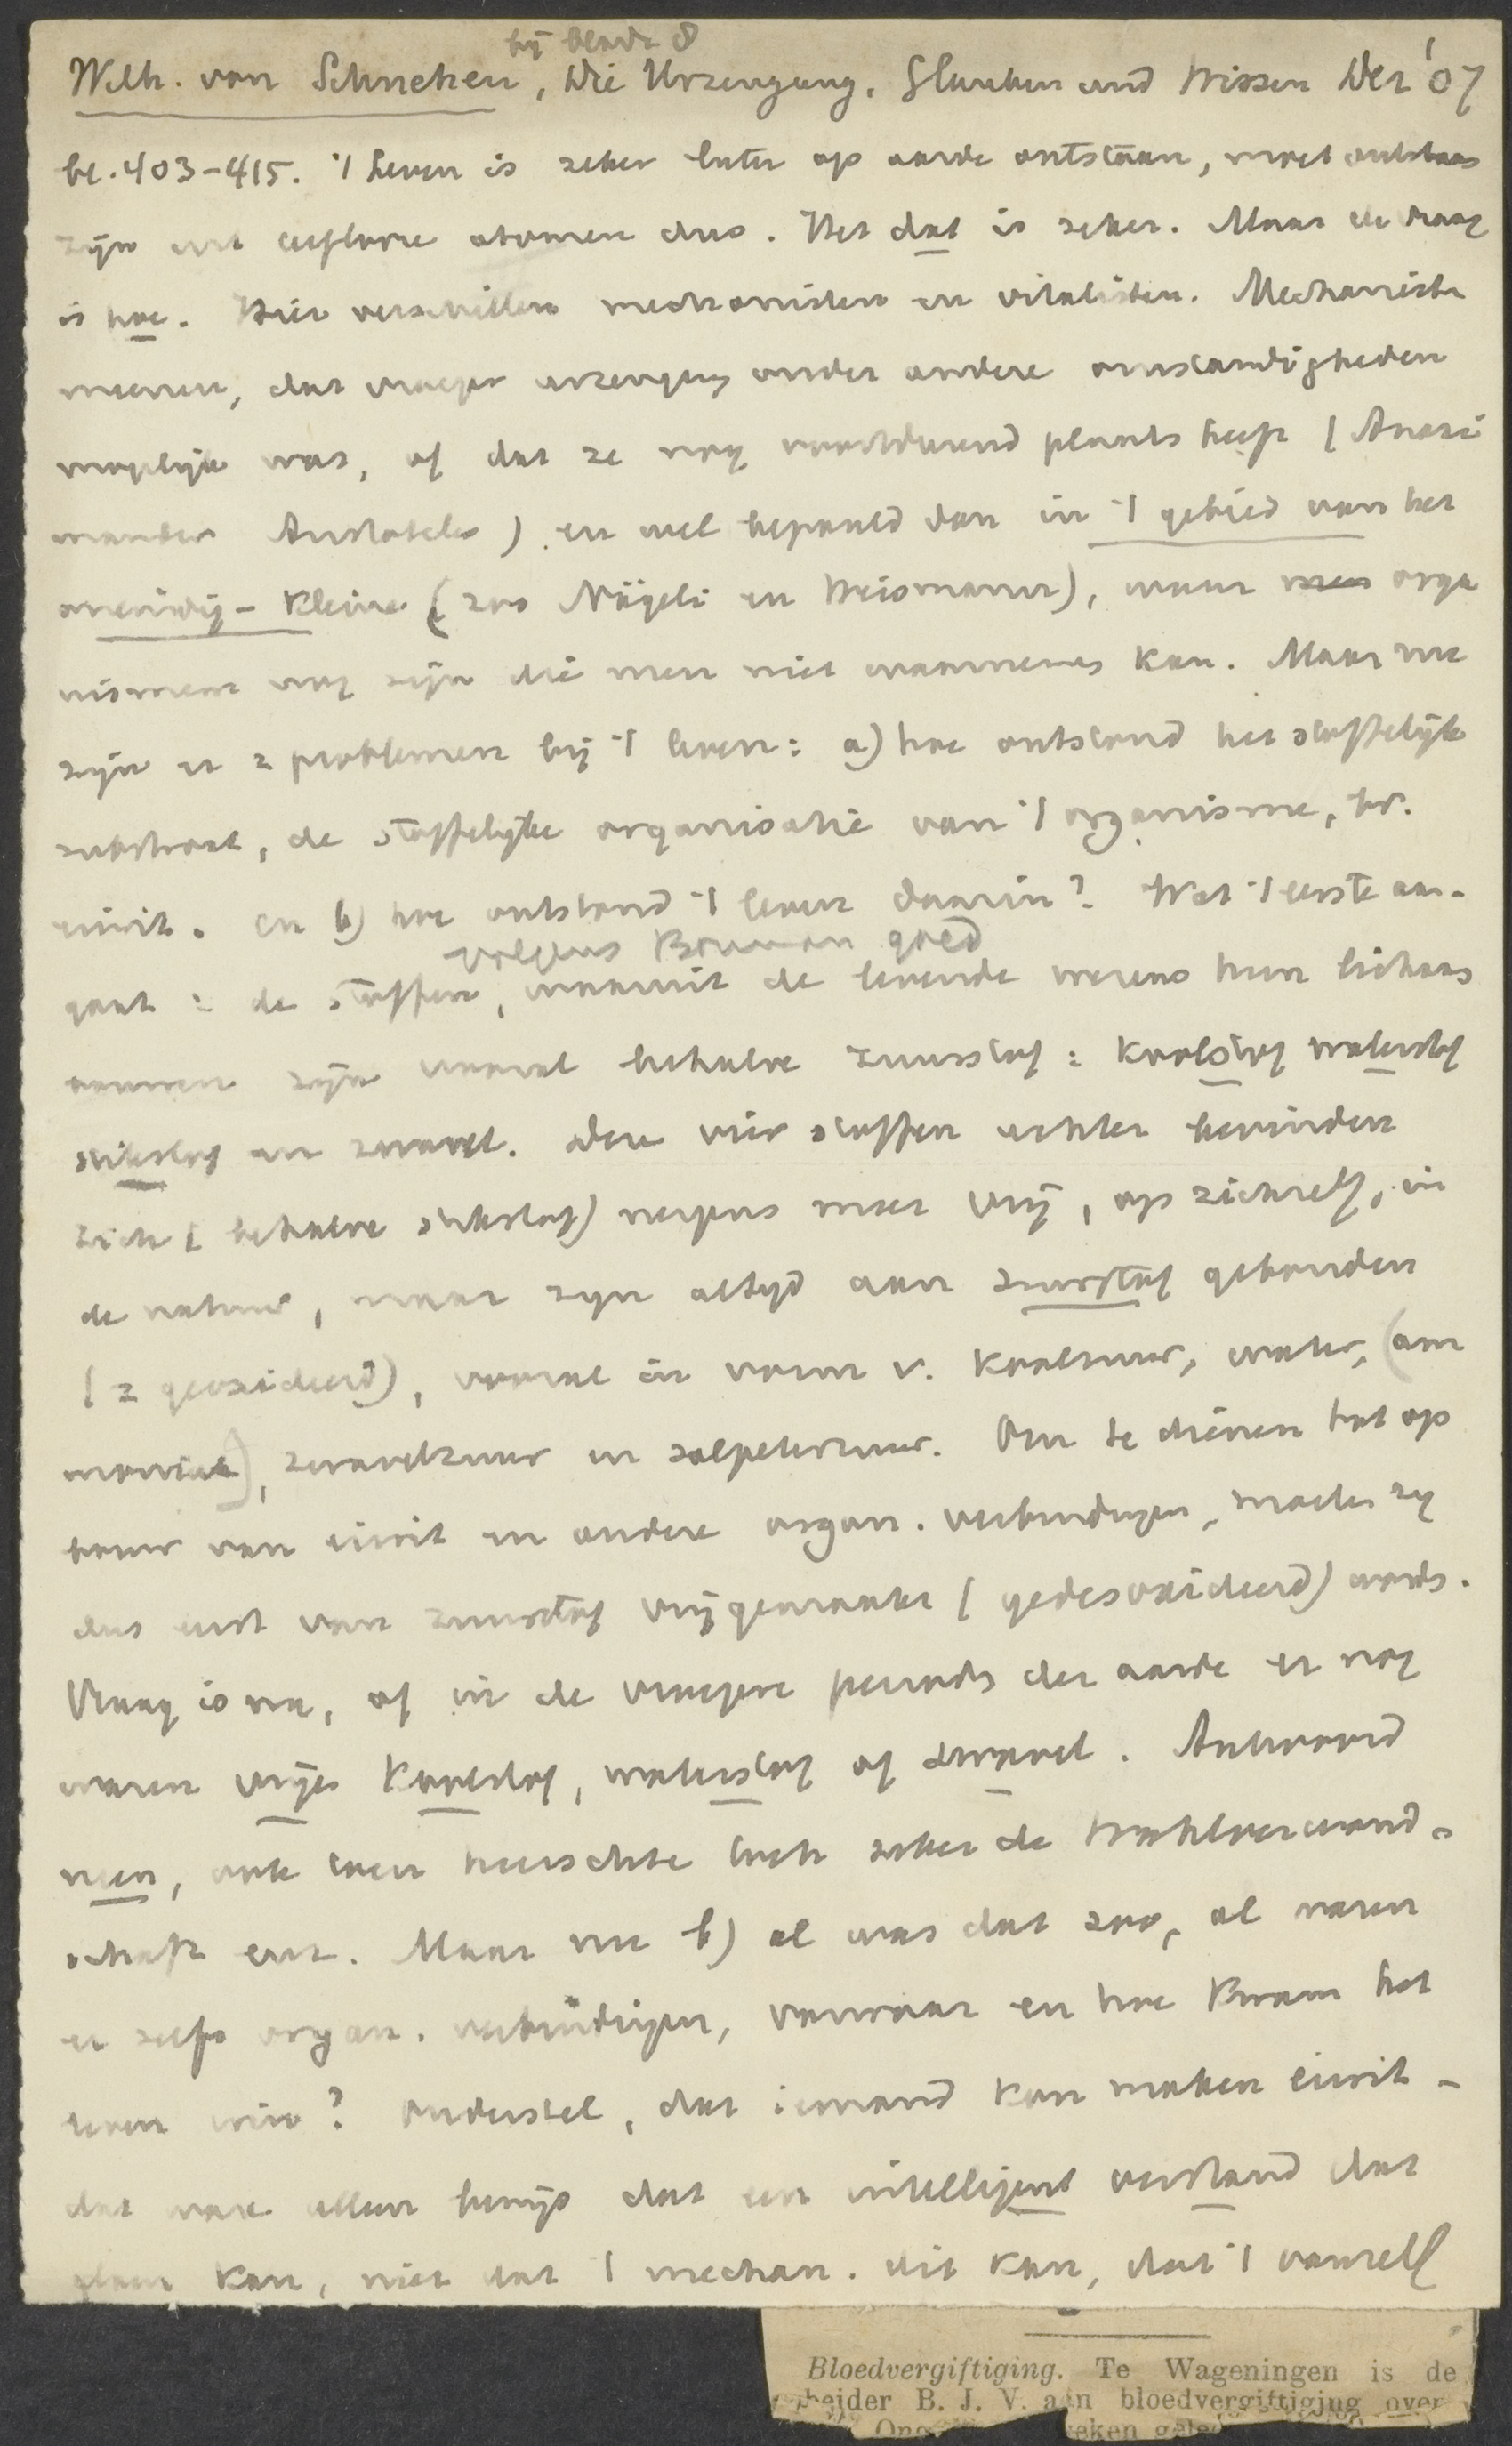 bij blade 8
Wilh. von Schnehen, Die Urzeugung. Glauben und Wissen Dez '07
bl. 403-415. 't Leven is zeker later op aarde ontstaan, moet ontstaan
zijn uit levenlooze atomen dus. Het dat is zeker. Maar de vraag
is hoe. Hier verschillen mechanisten en vitalisten. Mechanisten
meenen, dat vroeger urzeugung onder andere omstandigheden
mogelijk was, of dat ze nog voortdurend plaats heeft (Anaxi
mander Aristoteles) en wel bepaald dan in 't gebied van het
oneindig-kleine (zoo Nägeli en Weismann), waar orga
nismen nog zijn die men niet waarnemen kan. Maar nu
zijn er 2 problemen bij 't leven: a) hoe ontstond het stoffelijk
substraat, de stoffelijke organisatie van 't organisme, bv.
eiwit. en b) hoe ontstond 't leven daarin? Wat 't eerste aan-
volgens Bouman goed
gaat: de stoffen, waaruit de levende wezens hun lichaam
bouwen zijn vooral behalve zuurstof: koolstof waterstof
stikstof en zwavel. Deze vier stoffen echter bevinden
zich (behalve stikstof) nergens meer vrij, op zichzelf, in
de natuur, maar zijn altijd aan zuurstof gebonden
(= geoxideerd), vooral in vorm v. koolzuur, water, (am
moniak), zwavelzuur en salpeterzuur. Om te dienen tot op
bouw van eiwit en andere organ. verbindingen, moeten zij
dus eerst van zuurstof vrijgemaakt (gedesoxideerd) worden.
Vraag is nu, of in de vroegere periods der aarde er nog
waren vrije koolstof, waterstof of zwavel. Antwoord
neen, ook toen heerschte toch zeker de Wahlverwand-
schaft enz. Maar nu b) al was dat zoo, al waren
er zelfs organ. verbindingen, vanwaar en hoe kwam het
leven erin? Onderstel, dat iemand kan maken eiwit -
dat ware alleen bewijs dat een intelligent verstand dat
doen kan, niet dat 't mechan. dit kan, dat 't vanzelf
Bloedvergiftiging. Te Wageningen is de
beider B. J. V. aan bloedvergiftiging over